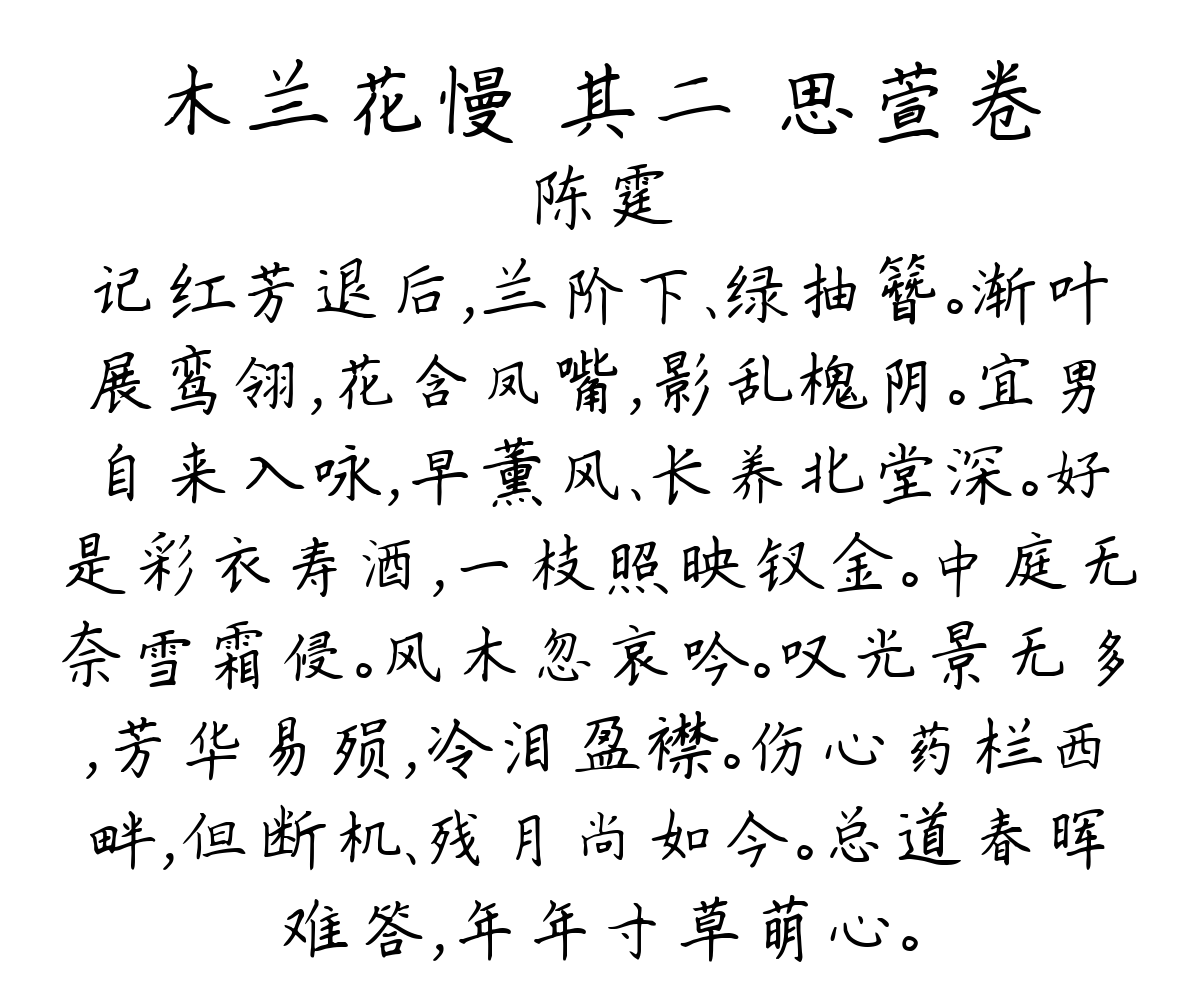 木兰花慢 其二 思萱卷
陈霆
记红芳退后,兰阶下、绿抽簪。渐叶
展鸾翎,花含凤嘴,影乱槐阴。宜男
自来入咏,早薰风、长养北堂深。好
是彩衣寿酒,一枝照映钗金。中庭无
奈雪霜侵。风木忽哀吟。叹光景无多
,芳华易殒,冷泪盈襟。伤心药栏西
畔,但断机、残月尚如今。总道春晖
难答,年年寸草萌心。